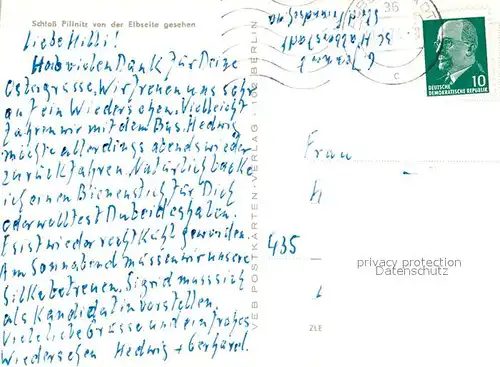 Schloß Pillnitz von der Elbseite gesehen
Liebe Hilli!
Hab vielen Dank für Deine
Ostergrüsse. Wir freuen uns sehr
auf ein Wiedersehen. Vielleicht
fahren wir mit dem Bus. Hedwig
möchte allerdings abends wieder
zurückfahren. Natürlich backe
ich einen Bienenstich für Dich
oder wolltest Du beides haben.
Es ist wieder recht kühl geworden.
Am Sonnabend müssen wir unsere
Silke betreuen. Sigrid muss sich
als Kandidatin vorstellen.
Viele liebe Grüsse und ein frohes
Wiedersehen Hedwig + Gerhard.
VEB POSTKARTEN-VERLAG · 102 BERLIN
36
c
DEUTSCHE
DEMOKRATISCHE REPUBLIK 10
Frau
435
privacy protection
Datenschutz
ZLE